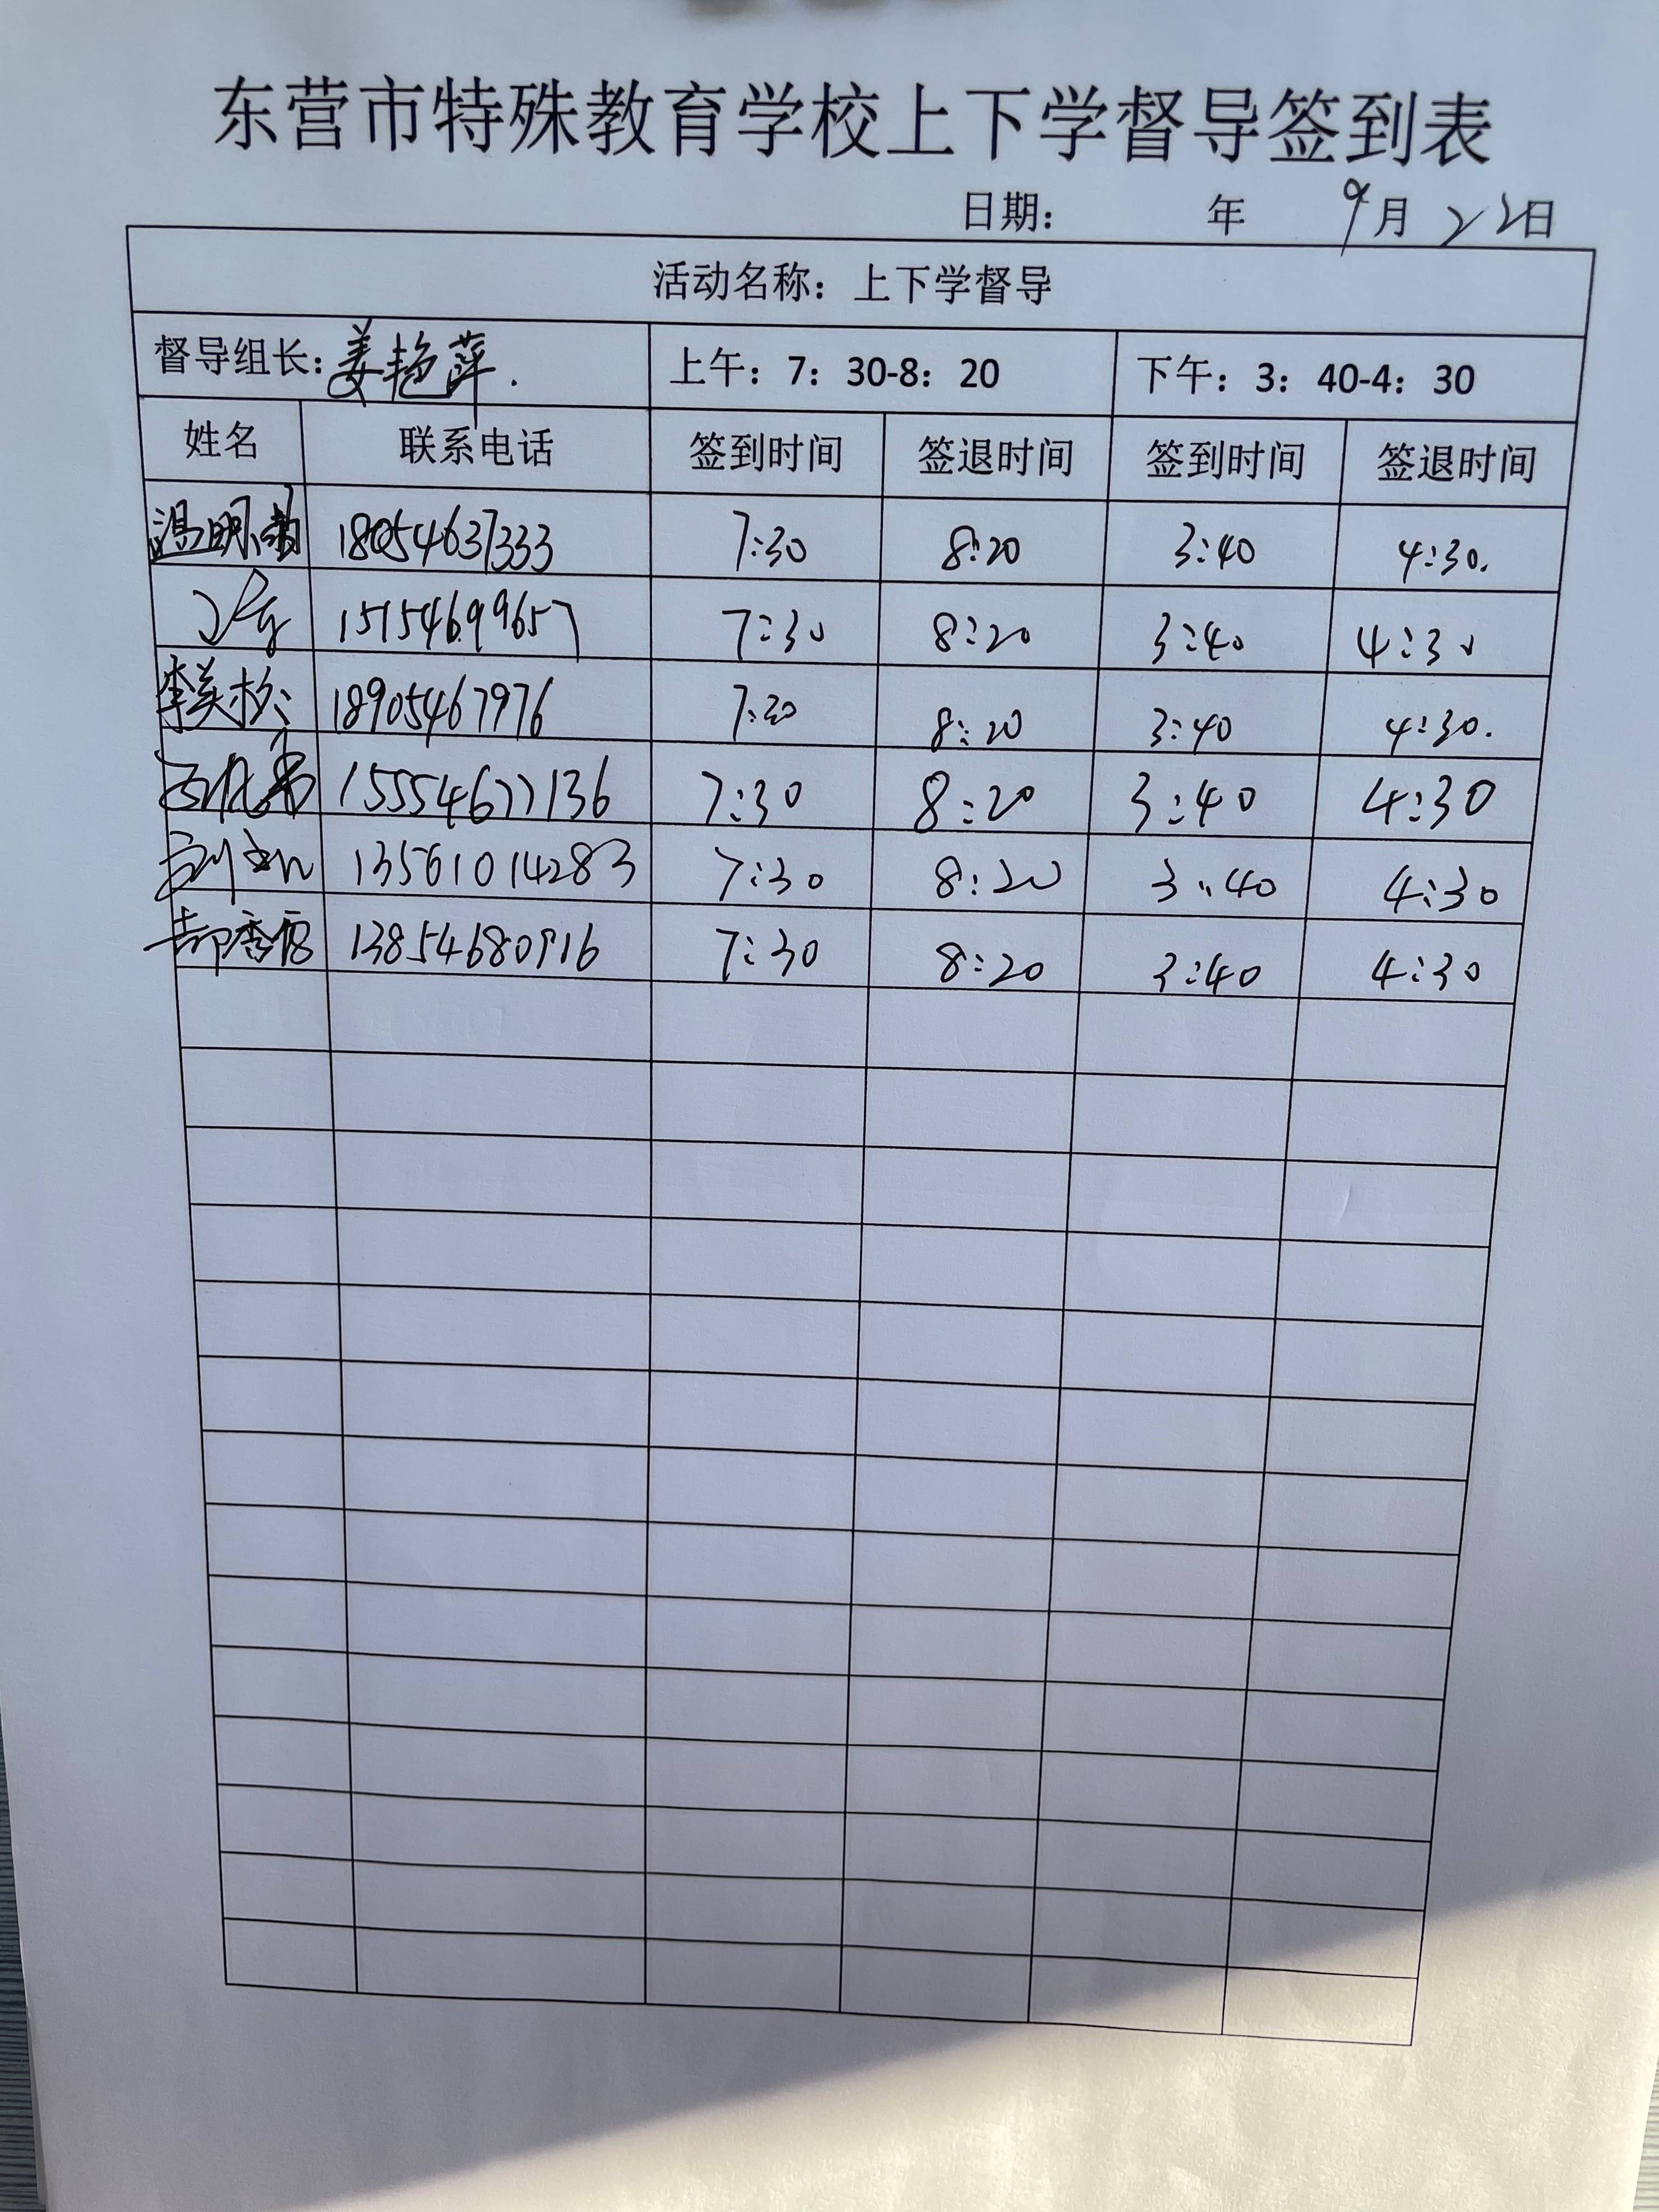 东营市特殊教育学校上下学督导签到表
日期: 年 9月22日
活动名称：上下学督导
督导组长：姜艳萍. 上午：7：30-8：20 下午：3：40-4：30
姓名 联系电话 签到时间 签退时间 签到时间 签退时间
18054637333 7:30 8:20 3:40 4:30.
15154699657 7:30 8:20 3:40 4:30
李美松 18905467976 7:30 8:20 3:40 4:30.
15554677136 7:30 8:20 3:40 4:30
13561014283 7:30 8:20 3:40 4:30
13854680916 7:30 8:20 3:40 4:30